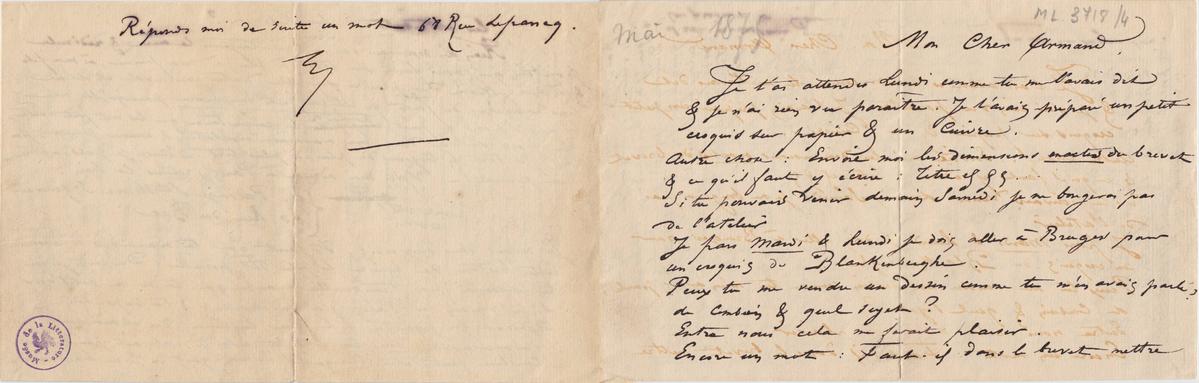 Réponds moi de suite un mot 68 Rue
Musée de la Littérature
Mai 187
ML 3718/4
Mon Cher Armand,
Je t'ai attendu Lundi comme tu me l'avais dit
& je n'ai rien vu paraître. Je t'avais préparé un petit
croquis sur papier & un Cuivre.
Autre chose : Envoie moi les dimensions exactes du brevet
& ce qu'il faut y écrire : titre
Si tu pouvais venir demain Samedi je ne bougerai pas
de l'atelier
Je pars Mardi & Lundi je dois aller à Bruges pour
un croquis de Blankenberghe.
Peux tu me vendre un dessin comme tu m'en avais parlé,
de Combien & quel sujet ?
Entre nous cela me ferait plaisir.
Encore un mot : Faut-il dans le brevet mettre